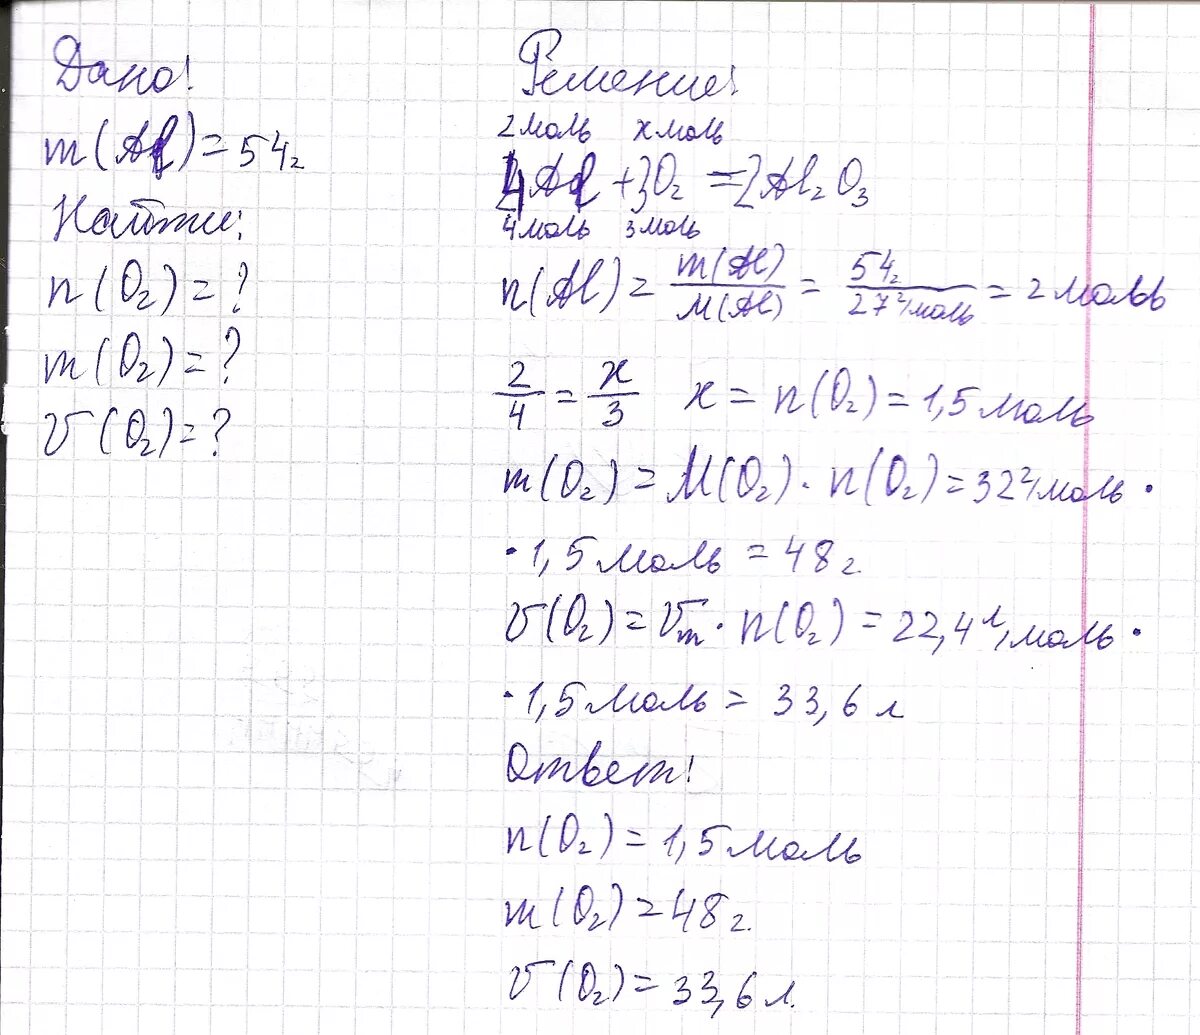 Дано:
m(Al) = 54г
Найти:
n(O₂) = ?
m(O₂) = ?
V(O₂) = ?
Решение:
2моль xмоль
4Al + 3O₂ = 2Al₂O₃
4моль 3моль
n(Al) = m(Al)/M(Al) = 54г/27г/моль = 2моль
2/4 = x/3 x = n(O₂) = 1,5моль
m(O₂) = M(O₂) · n(O₂) = 32г/моль ·
· 1,5моль = 48г
V(O₂) = Vm · n(O₂) = 22,4л/моль ·
· 1,5моль = 33,6л
Ответ:
n(O₂) = 1,5моль
m(O₂) = 48г.
V(O₂) = 33,6л.